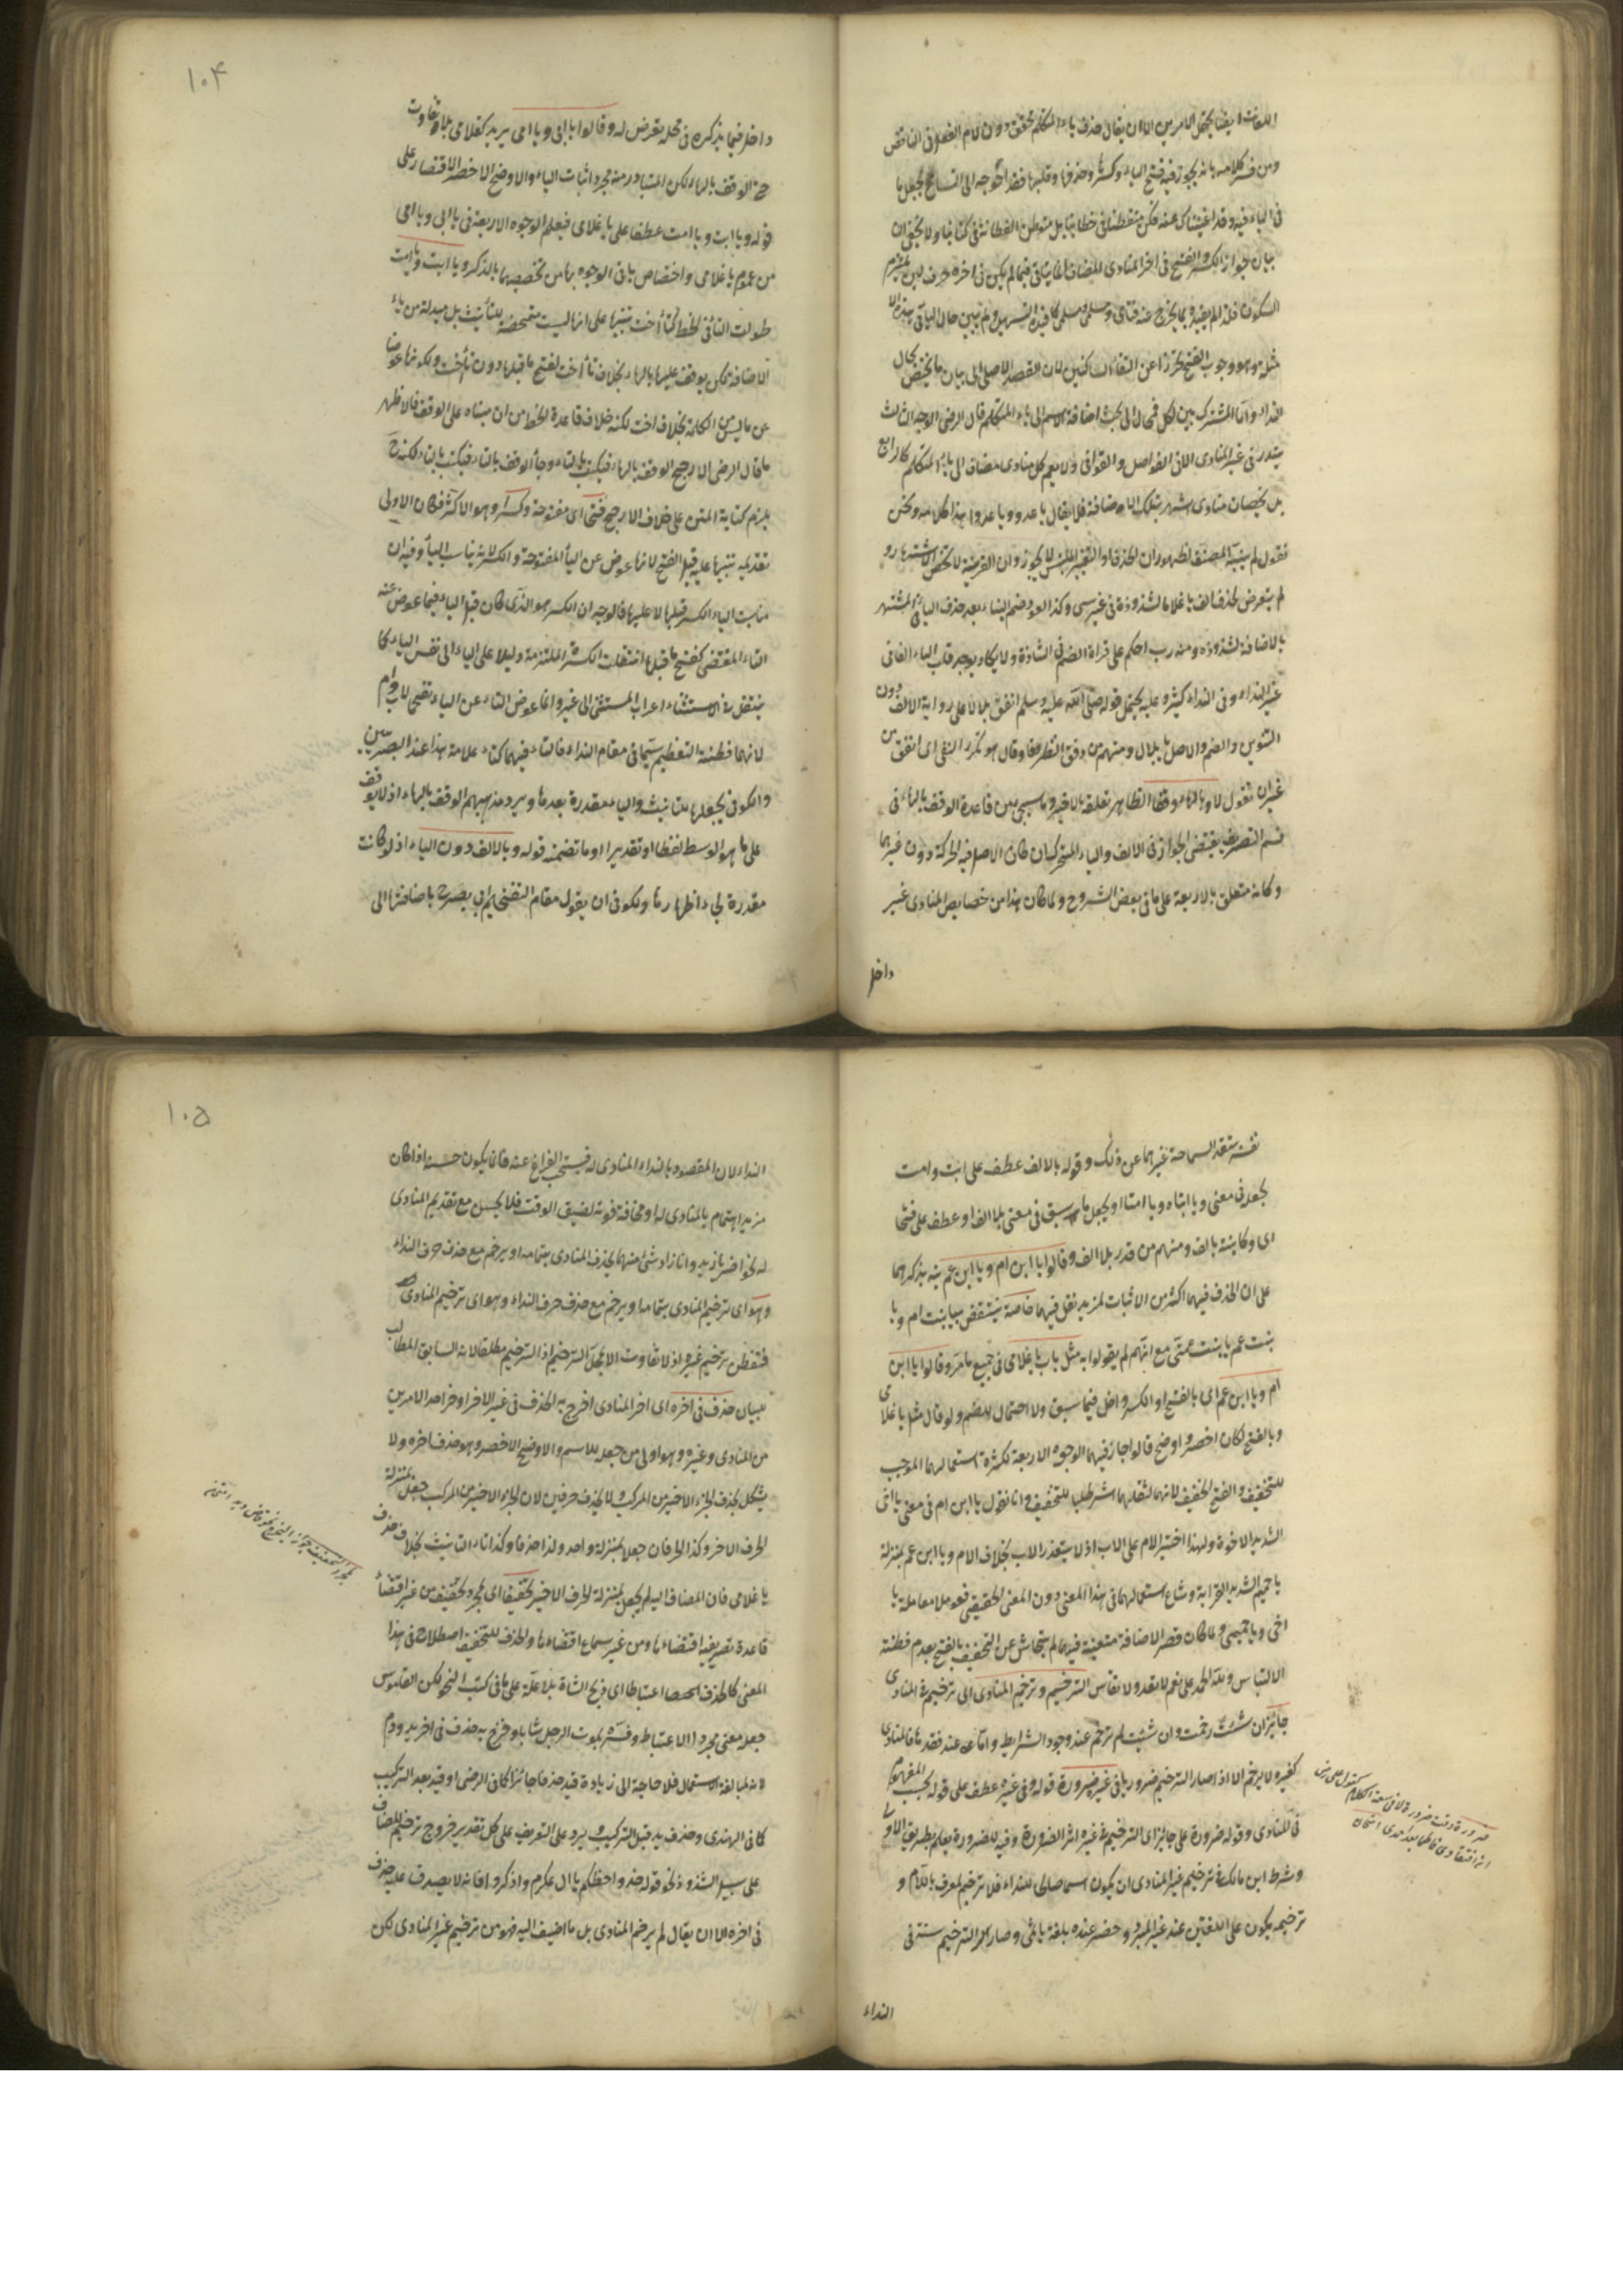 اللغات ايضا يحتمل الامرين الا ان يقال حذف ياء المتكلم تحقق دون لام الفعل فى الناقص
ومن فسر كلامه بانه يجوز فيه فتح الياء وكسرها وحذفها وقلبها فقد احوجه الى التسامح بجعل ما
فى الياء فيه وقد اغنيناك عنه فكن متفطنا فى خطابنا بل متوطن الفطانة فى كتابنا ولا يخفى ان
بيان جواز الكسر والفتح فى اخر المنادى المضاف انما يتأتى فيما لم يكن فى اخره حرف لين يلتزم
السكون فلذا لم يقيده بما يخرج عنه فتاى ومسلمى ومسلمى كما قيده التسهيل ولم يبين حال الباقى
مثله وهو وجوب الفتح تحرزا عن التقاء الساكنين لان القصد الاصلى الى بيان ما يختص بحال
النداء واما المشترك بين الكل فمحال الى بحث اضافة الاسم الى ياء المتكلم قال الرضى الوجه الثالث
يندر فى غير المنادى الا فى الفواصل والقوافى ولا يعم كل منادى مضاف الى ياء المتكلم كالرابع
بل يخصان منادى اشتهر بتلك الاضافة فلا يقال يا عدو ويا عدوا هذا كلامه ونحن
نقول لم ينبه المصنف لظهور ان الحذف او التغيير الملبس لا يجوز وان القرينة لا تخص الاشتهار و
لم يتعرض لحذف الف يا غلاما لشذوذه فى غير سبى وكذا العود ضم البناء بعد حذف الياء فى المشتهر
بالاضافة لشذوذه ومنه رب احكم على قراءة الضم فى الشاذة ولا يكاد يوجد قلب الياء الفا فى
غير النداء وفى النداء كثير وعليه يحتمل قوله صلى الله عليه وسلم انفق بلالا على رواية الالف دون
التنوين والضم والاصل يا بلال ومنهم من دقق النظر فقال هو تكرر النفى اى انفق من
غير ان تقول لا وبالهاء وقفا الظاهر تعلقه بالاخير وما سيجئ من قاعدة الوقف بالهاء فى
قسم التصريف يقتضى الجواز فى الالف والياء المتحركان كان الاصل فيه الحركة دون غيرهما
وكانه متعلق بالاربعة على ما فى بعض الشروح ولما كان هذا من خصايص المنادى غير
داخل
١٠٤
داخل فيما يذكره فى محله تعرض له وقالوا يا ابى ويا امى يريد كغلامى بلا تفاوت
حتى الوقف بالهاء لكن المتبادر منه مجرد اثبات الياء والاوضح الاخصر الاقتصار على
قوله ويا ابت ويا امت عطفا على يا غلامى فيعلم الوجوه الاربعة فى يا ابى ويا امى
من عموم يا غلامى واختصاص باقى الوجوه بهما من تخصيصهما بالذكر ويا ابت وامت
طولت التاء فى الخط كتاء اخت تنبيها على انها ليست متمحضة للتأنيث بل مبدلة من ياء
الاضافة لكن يوقف عليها بالهاء بخلاف تاء اخت لفتح ما قبلها دون تاء اخت ولكونها عوضا
عن ما ليس من الكلمة بخلاف اخت لكنه خلاف قاعدة الخط من ان مبناه على الوقف فالاظهر
ما قال الرضى الارجح الوقف بالهاء فيكتب بالهاء وجاء الوقف بالتاء فيكتب بالتاء لكنه ح
يلزم كتابة المتن على خلاف الارجح فتحا اى مفتوحة وكسرا وهو الاكثر فكان الاولى
تقديمه تنبيها عليه قيل الفتح لانها عوض عن الياء المفتوحة والكسر لانه يناسب الياء وفيه ان
مناسب الياء الكسر قبلها لا عليها فالوجه ان الكسر هو الذى كان قبل الياء فيما عوض عنه
التاء المقتضى لفتح ما قبلها انتقلت الكسرة الملتزمة دليلا على الياء الى نفس الياء كما
ينتقل فى الاستثناء اعراب المستثنى الى غير وانما عوض التاء عن الياء تفخيما لاب وام
لانهما مظنة التعظيم سيما فى مقام النداء فالتاء فيهما كتاء علامة هذا عند البصريين
والكوفى يجعلها للتانيث والياء مقدرة بعدها ويرد مذهبهم الوقف بالهاء اذ لا يوقف
على ما هو الوسط لفظا او تقديرا او ما تضمنه قوله وبالالف دون الياء اذ لو كانت
مقدرة لجاء اظهارها وللكوفى ان يقول مقام التفخيم لم يصرح باضافتها الى
نفسه تفقد السماحة غيرها عن ذلك وقوله بالالف عطف على ابت وامت
بجعله فى معنى ويا ابتاه ويا امتا او بجعل ما سبق فى معنى بلا الف او عطف على فتحا
اى وكاينة بالف ومنهم من قدر بلا الف وقالوا يا ابن ام ويا ابن عم نبه بذكرهما
على ان الحذف فيهما اكثر من الاثبات لمزيد نقل فيهما خاصة ينتقض بيا بنت ام ويا
بنت عم يا بنت عمى مع انهم لم يقولوا به مثل باب يا غلامى فى جميع ما مر وقالوا يا ابن
ام ويا ابن عم اى بالفتح او الكسر واخل فيما سبق ولا احتمال للضم ولو قال مثل يا غلامى
وبالفتح لكان اخصر واوضح قالوا جاز فيهما الوجوه الاربعة لكثرة استعمالهما الموجب
للتخفيف والفتح الخفيف لانهما لثقلهما اشد طلبا للتخفيف وانا نقول يا ابن ام فى معنى يا اخى
الشديد الاخوة ولهذا اختير الام على الاب اذ لا يتعدد الاب بخلاف الام ويا ابن عم بمنزلة
يا حميم الشديد القرابة وشاع استعمالهما فى هذا المعنى دون المعنى الحقيقى فعوملا معاملة يا
اخى ويا حميمى ولما كان قصر الاضافة متعينة فيهما لم يتحاش عن التخفيف بالفتح بعدم مظنة
الالتباس ولله الحمد على نعم لا تعد ولا تقاس الترخيم وترخيم المنادى اى ترخيم المنادى
جائز ان شئت رخمت وان شئت لم ترخم عند وجود الشرايط واما عند فقدها فالمنادى
كغيره لا يرخم الا اذا صار الترخيم ضروريا فى غير ضرورة قوله وفى غيره عطف على قوله بحسب المفهوم
فى المنادى وقوله ضرورة على جائز اى الترخيم فى غيره اثر الضرورة وفيه للضرورة يعلم بطريق الاولى
وشرط ابن مالك فى ترخيم غير المنادى ان يكون اسما صالحا للنداء فلا ترخيم لمعرف باللام و
ترخيمه يكون على اللغتين عند غير المبرد وحضر عنده بلغة يا ثمى وصار سر الترخيم سنة فى
النداء
١٠٥
النداء لان المقصود بالنداء المنادى له فيستحب الفراغ عنه فانما يكون حسنه اذا كان
مزيد اهتمام بالمنادى له او مخافة فوته لضيق الوقت فلا يحسن مع تقديم المنادى
له نحو اضرب يا زيد وانا زاد شئ منهما يحذف المنادى بتمامه او يرخم مع حذف حرف النداء
وهو اى ترخيم المنادى بتمامها ويرخم مع حذف حرف النداء وهو اى ترخيم المنادى
فتفطن ترخيم غيره اذ لا تفاوت الا بمحل الترخيم اذ الترخيم مطلقا لانه السابق المطالب
ببيان حذف فى اخره اى اخر المنادى اخرج به الحذف فى غير الاخر او خراحد الامرين
من المنادى وغيره وهو اولى من جعله للاسم والاوضح الاخصر وهو حذف اخره ولا
يشكل بحذف الجزء الاخير من المركب ولا بحذف حرفين لان الجزء الاخير من المركب جعل بمنزلة
الحرف الاخر وكذا الحرفان جعلا بمنزلة واحد ولذا حذفا وكذا تاء التانيث بخلاف حذف
يا غلامى فان المضاف اليه لم يجعل بمنزلة الحرف الاخير تخفيفا اى لمجرد تخفيف من غير اقتضاء
قاعدة تصريفية اقتضاءها ومن غير سماع اقتضاءها والحذف للتخفيف اصطلاح فى هذا
المعنى كالحذف اعتباطا اى ذبح الشاة بلا علة على ما فى كتب النحو لكن القاموس
جعله معنى مجرد الاعتباط وفسره بموت الرجل شابا وخرج به حذف فى اخر يد ودم
لانه لمبالغة الاستعمال فلا حاجة الى زيادة قيد حذفا جائزا كما فى الرضى او قيد بعد التركيب
كما فى الهندى وحذف يد قبل التركيب ويرد على التعريف على كل تقدير خروج ترخيم المضاف
على سبيل الشذوذ نحو قوله خذوا حظكم يا ال عكرم واذكروا فانه لا يصدق عليه حذف
فى اخره الا ان يقال لم يرخم المنادى بل ما اضيف اليه فهو من ترخيم غير المنادى لكن